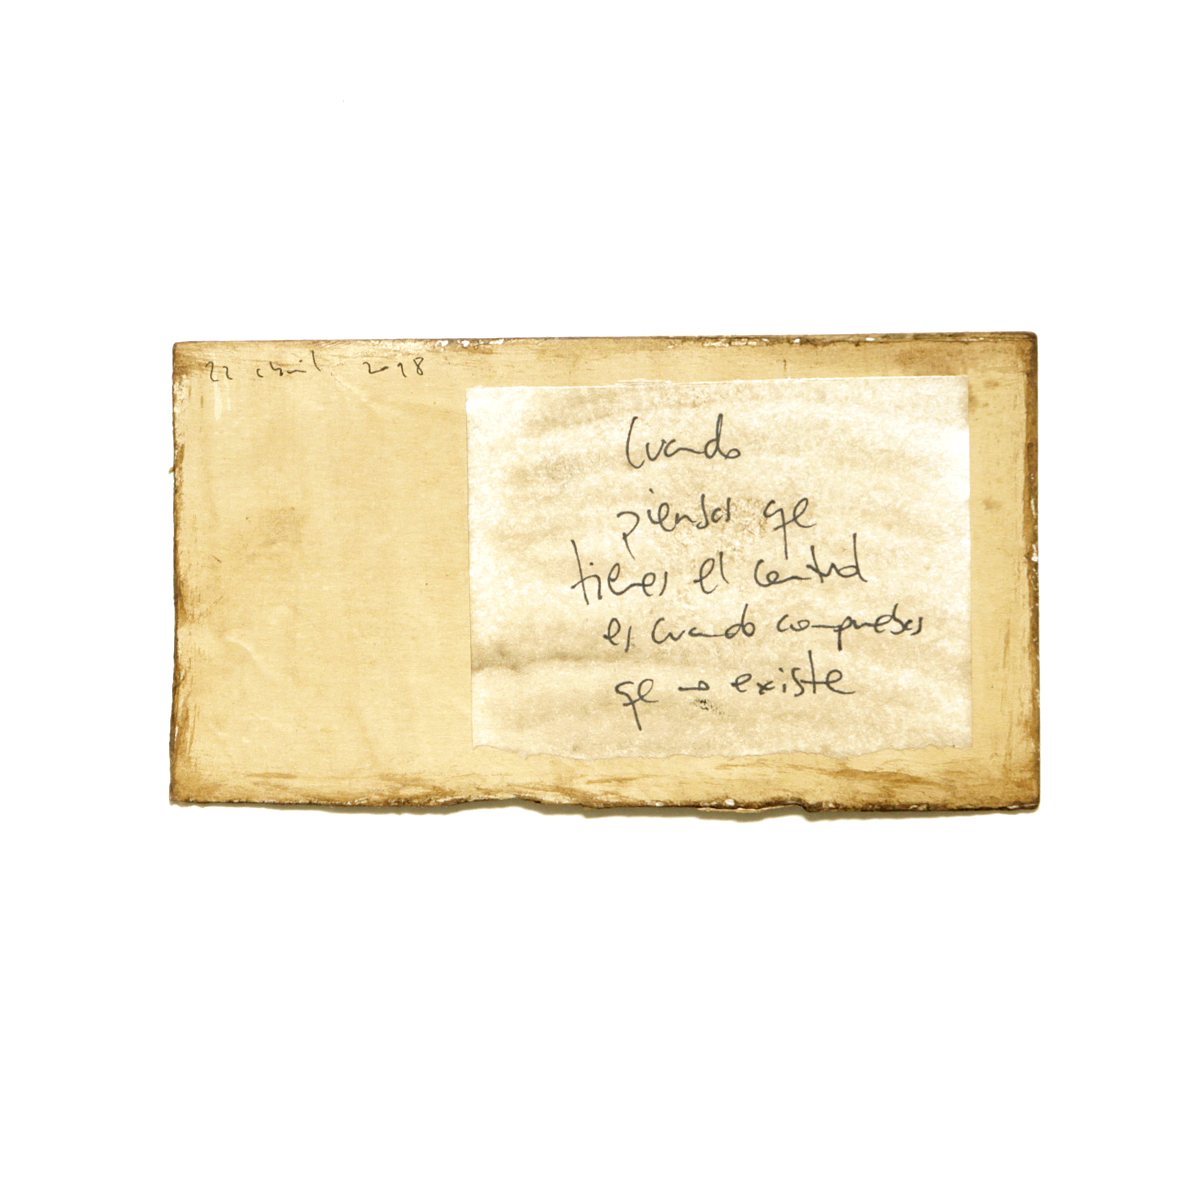 22 abril 2018
Cuando
piensas qe
tienes el control
es cuando compruebas
qe no existe